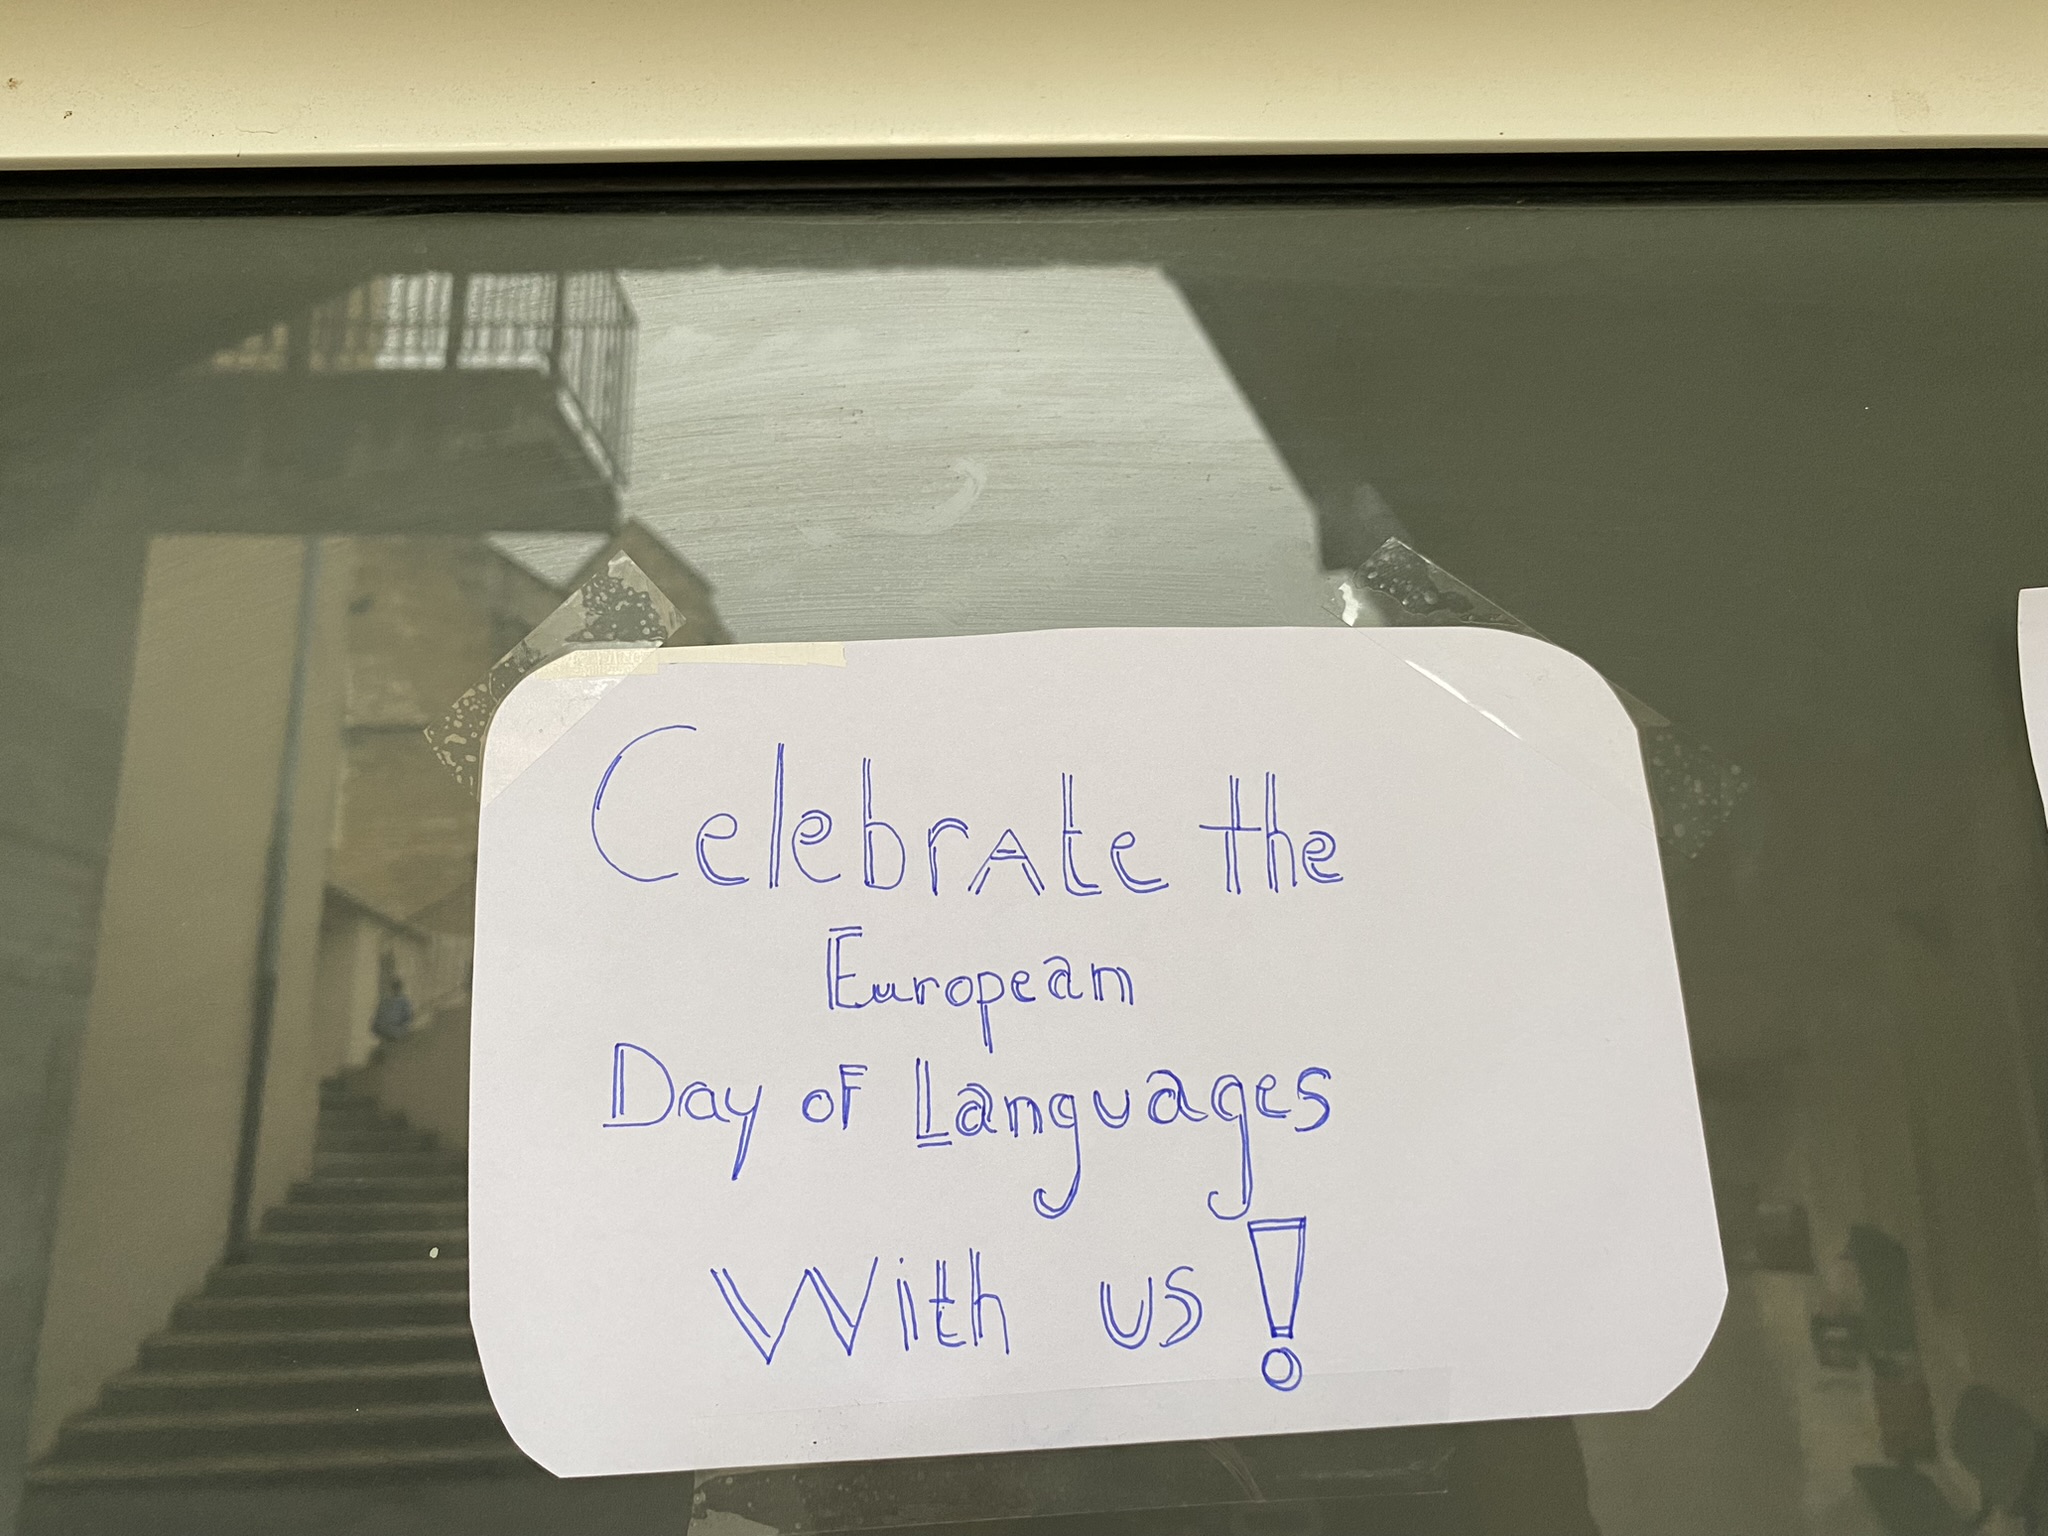 Celebrate the
European
Day of Languages
With us!